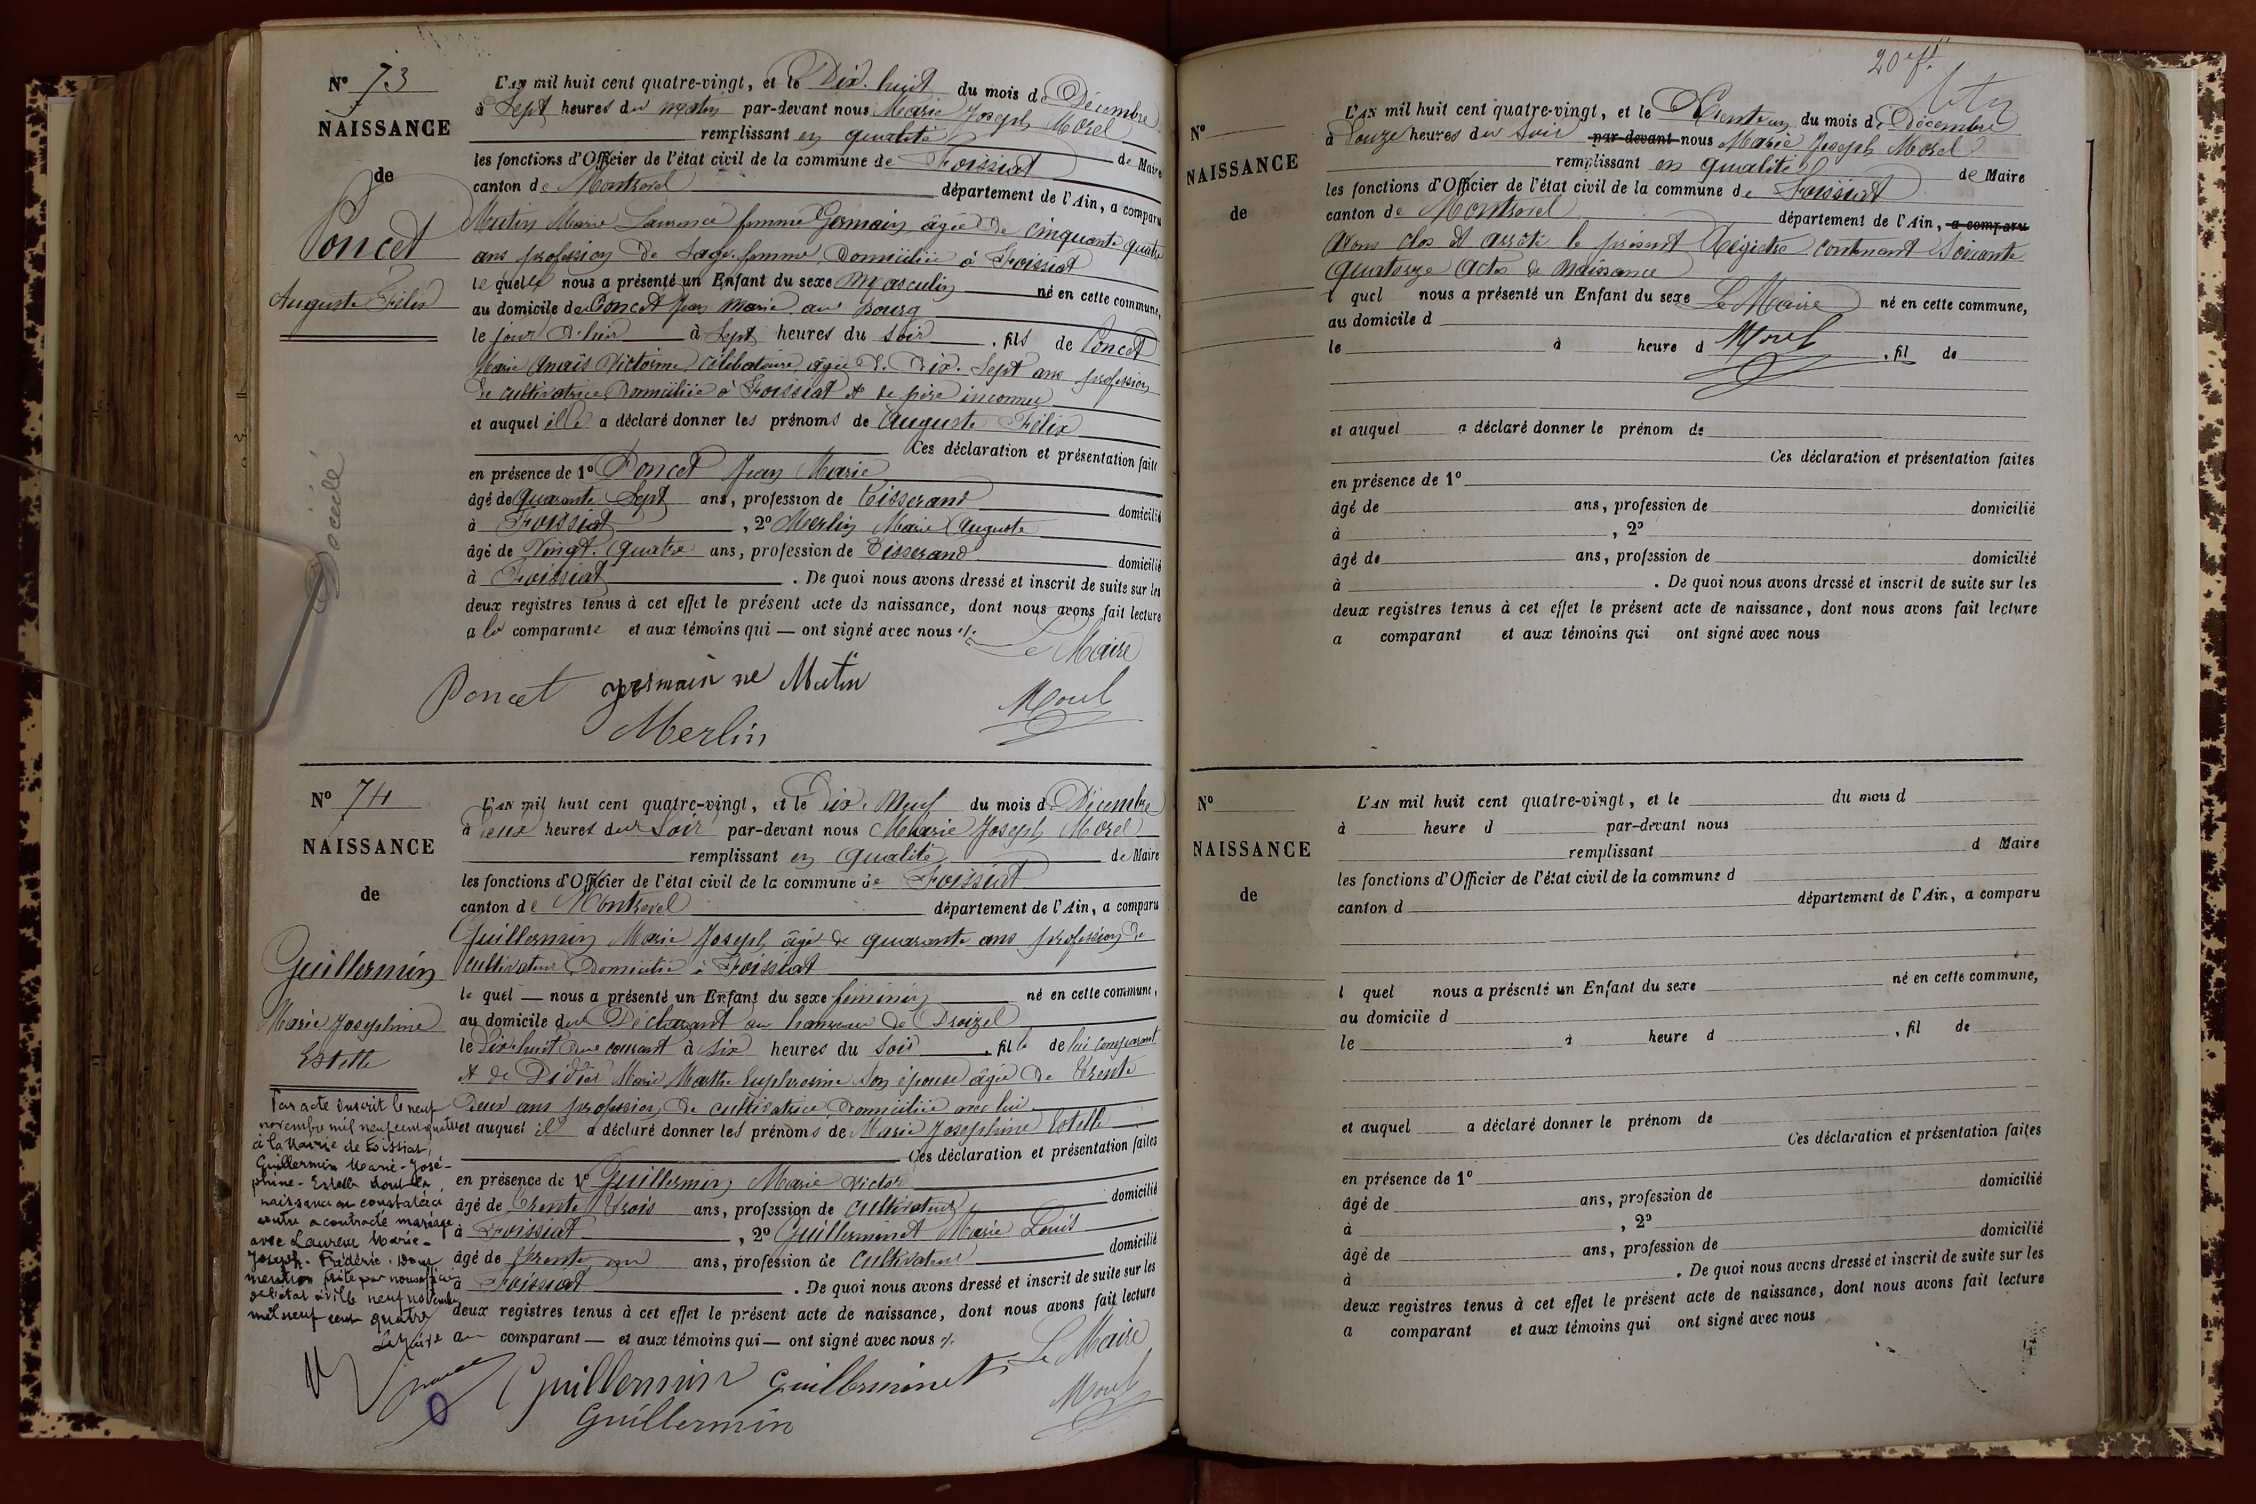 N° 73
NAISSANCE
de
Poncet
Auguste Félix
Décédé
L'AN mil huit cent quatre-vingt, et le Dix-huit du mois de Décembre
à Sept heures du matin par-devant nous Marie Joseph Morel
remplissant en qualité de Maire
les fonctions d'Officier de l'état civil de la commune de Foissiat
canton de Montrevel département de l'Ain, a comparu
Mutin Marie Laurence femme Germain âgée de cinquante quatre
ans profession de Sage-femme domiciliée à Foissiat
le quelle nous a présenté un Enfant du sexe masculin né en cette commune,
au domicile de Poncet Jean Marie au bourg
le jour d'hier à Sept heures du soir, fils de Poncet
Marie Anaïs Victorine célibataire âgée de Dix-Sept ans profession
de cultivatrice Domiciliée à Foissiat et de père inconnu
et auquel elle a déclaré donner les prénoms de Auguste Félix
Ces déclaration et présentation faites
en présence de 1° Poncet Jean Marie
âgé de quarante Sept ans, profession de Tisserand domicilié
à Foissiat, 2° Merlin Marie Auguste
âgé de Vingt-quatre ans, profession de Tisserand domicilié
à Foissiat. De quoi nous avons dressé et inscrit de suite sur les
deux registres tenus à cet effet le présent acte de naissance, dont nous avons fait lecture
a la comparante et aux témoins qui — ont signé avec nous
Le Maire
Poncet germain ne Mutin
Morel
Merlin
N° 74
NAISSANCE
de
Guillermin
Marie Josephine
Estelle
Par acte inscrit le neuf
novembre mil neuf cent quatre
à la Mairie de Foissiat,
Guillermin Marie-José-
phine-Estelle dont la
naissance est constatée ci
contre a contracté mariage
avec Laurent Marie-
Joseph-Frédéric. Dont
mention faite par nous officier
de l'état civil le neuf novembre
mil neuf cent quatre
Le Maire
L'AN mil huit cent quatre-vingt, et le Dix-Neuf du mois de Décembre
à deux heures du Soir par-devant nous Marie Joseph Morel
remplissant en qualité de Maire
les fonctions d'Officier de l'état civil de la commune de Foissiat
canton de Montrevel département de l'Ain, a comparu
Guillermin Marie Joseph âgé de quarante ans profession de
cultivateur Domicilié à Foissiat
le quel — nous a présenté un Enfant du sexe féminin né en cette commune,
au domicile du Déclarant au hameau de
le Dix-huit du courant à Six heures du Soir, fille de lui comparant
et de Didier Marie Marthe Euphrosine Son épouse âgée de Trente
Deux ans profession de cultivatrice Domiciliée avec lui
et auquel il a déclaré donner les prénoms de Marie Josephine Estelle
Ces déclaration et présentation faites
en présence de 1° Guillermin Marie Victor
âgé de Trente Trois ans, profession de cultivateur domicilié
à Foissiat, 2° Guillerminet Marie Louis
âgé de Trente un ans, profession de cultivateur domicilié
à Foissiat. De quoi nous avons dressé et inscrit de suite sur les
deux registres tenus à cet effet le présent acte de naissance, dont nous avons fait lecture
au comparant — et aux témoins qui — ont signé avec nous
Le Maire
Guillermin Guillerminet
Morel
Guillermin
20 eft
N°
NAISSANCE
de
L'AN mil huit cent quatre-vingt, et le Trente un du mois de Décembre
à Douze heures du Soir par-devant nous Marie Joseph Morel
remplissant en qualité de Maire
les fonctions d'Officier de l'état civil de la commune de Foissiat
canton de Montrevel département de l'Ain, a comparu
Avons clos et arrêté le présent Régistre contenant Soixante
quatorze Actes de naissance
l quel nous a présenté un Enfant du sexe Le Maire né en cette commune,
au domicile d
le à heure d Morel, fil de
et auquel a déclaré donner le prénom de
Ces déclaration et présentation faites
en présence de 1°
âgé de ans, profession de domicilié
à , 2°
âgé de ans, profession de domicilié
à . De quoi nous avons dressé et inscrit de suite sur les
deux registres tenus à cet effet le présent acte de naissance, dont nous avons fait lecture
a comparant et aux témoins qui ont signé avec nous
N°
NAISSANCE
de
L'AN mil huit cent quatre-vingt, et le du mois d
à heure d par-devant nous
remplissant d Maire
les fonctions d'Officier de l'état civil de la commune d
canton d département de l'Ain, a comparu
l quel nous a présenté un Enfant du sexe né en cette commune,
au domicile d
le à heure d , fil de
et auquel a déclaré donner le prénom de
Ces déclaration et présentation faites
en présence de 1°
âgé de ans, profession de domicilié
à , 2°
âgé de ans, profession de domicilié
à . De quoi nous avons dressé et inscrit de suite sur les
deux registres tenus à cet effet le présent acte de naissance, dont nous avons fait lecture
a comparant et aux témoins qui ont signé avec nous